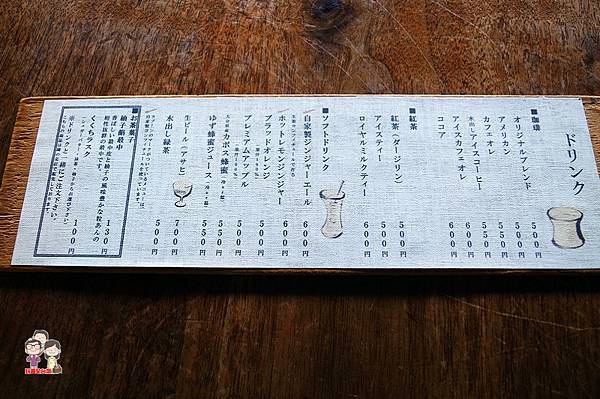 ドリンク
■珈琲
オリジナルブレンド 500円
アメリカン 500円
カフェオレ 550円
水出しアイスコーヒー 550円
アイスカフェオレ 600円
ココア 600円
■紅茶
紅茶(ダージリン) 500円
アイスティー 500円
ロイヤルミルクティー 600円
■ソフトドリンク
自家製ジンジャーエール 600円
ホットレモンジンジャー 600円
ブラッドオレンジ
プレミアムアップル 500円
カボス蜂蜜
ゆず蜂蜜ジュース 550円
生ビール(アサヒ) 700円
水出し緑茶 500円
■お茶菓子
柚子餡最中 130円
香ばしい最中皮と柚子の風味豊かな粒あんの
相性抜群の最中です。
くくちラスク 100円
※ドリンクと一緒にご注文下さい。